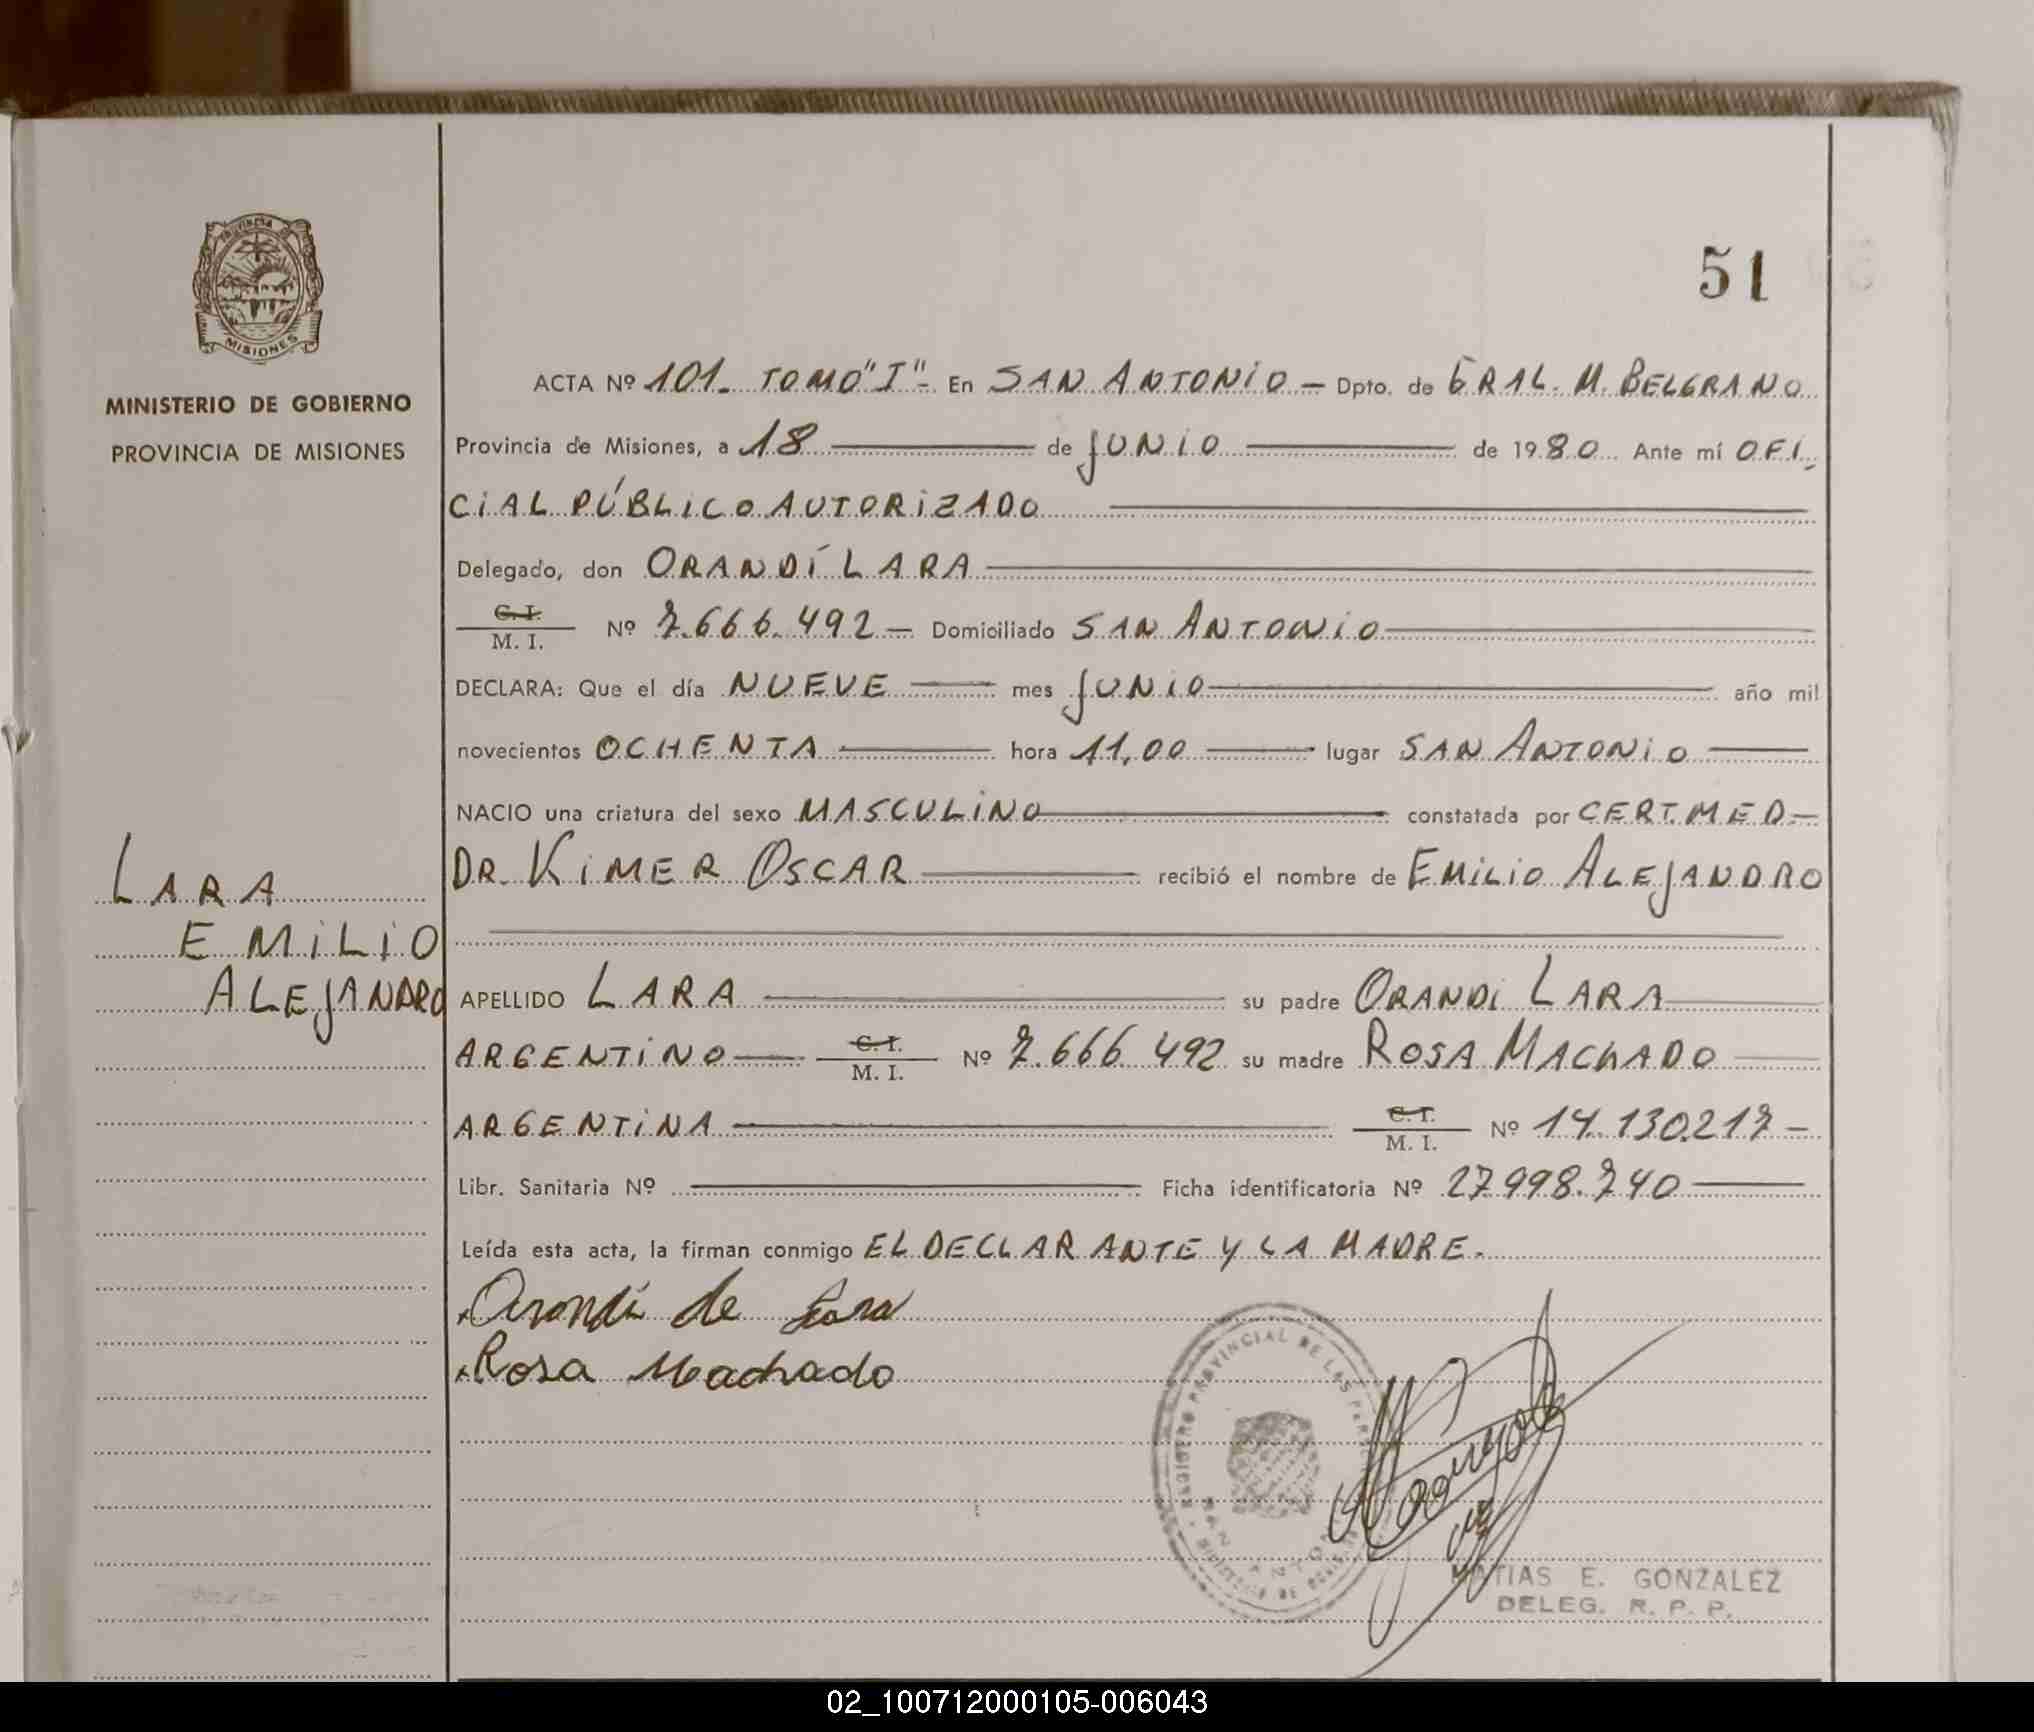 51
PROVINCIA DE
MISIONES
MINISTERIO DE GOBIERNO
PROVINCIA DE MISIONES
ACTA Nº 101. TOMO "I"- En SAN ANTONIO - Dpto. de GRAL. M. BELGRANO
Provincia de Misiones, a 18 de JUNIO de 1980 Ante mí OFI-
CIAL PÚBLICO AUTORIZADO
Delegado, don ORANDÍ LARA
C. I.
M. I. Nº 7.666.492 - Domiciliado SAN ANTONIO
DECLARA: Que el día NUEVE mes JUNIO año mil
novecientos OCHENTA hora 11,00 lugar SAN ANTONIO
NACIO una criatura del sexo MASCULINO constatada por CERT. MED.-
DR. KIMER OSCAR recibió el nombre de EMILIO ALEJANDRO
LARA
EMILIO
ALEJANDRO
APELLIDO LARA su padre ORANDI LARA
ARGENTINO C. I.
M. I. Nº 7.666.492 su madre ROSA MACHADO
ARGENTINA C. I.
M. I. Nº 14.130.217 -
Libr. Sanitaria Nº Ficha identificatoria Nº 27.998.740
Leída esta acta, la firman conmigo EL DECLARANTE Y LA MADRE.
Orandi de Lara
Rosa Machado
REGISTRO PROVINCIAL DE LAS
SAN ANTONIO
MATIAS E. GONZALEZ
DELEG. R. P. P.
02_100712000105-006043